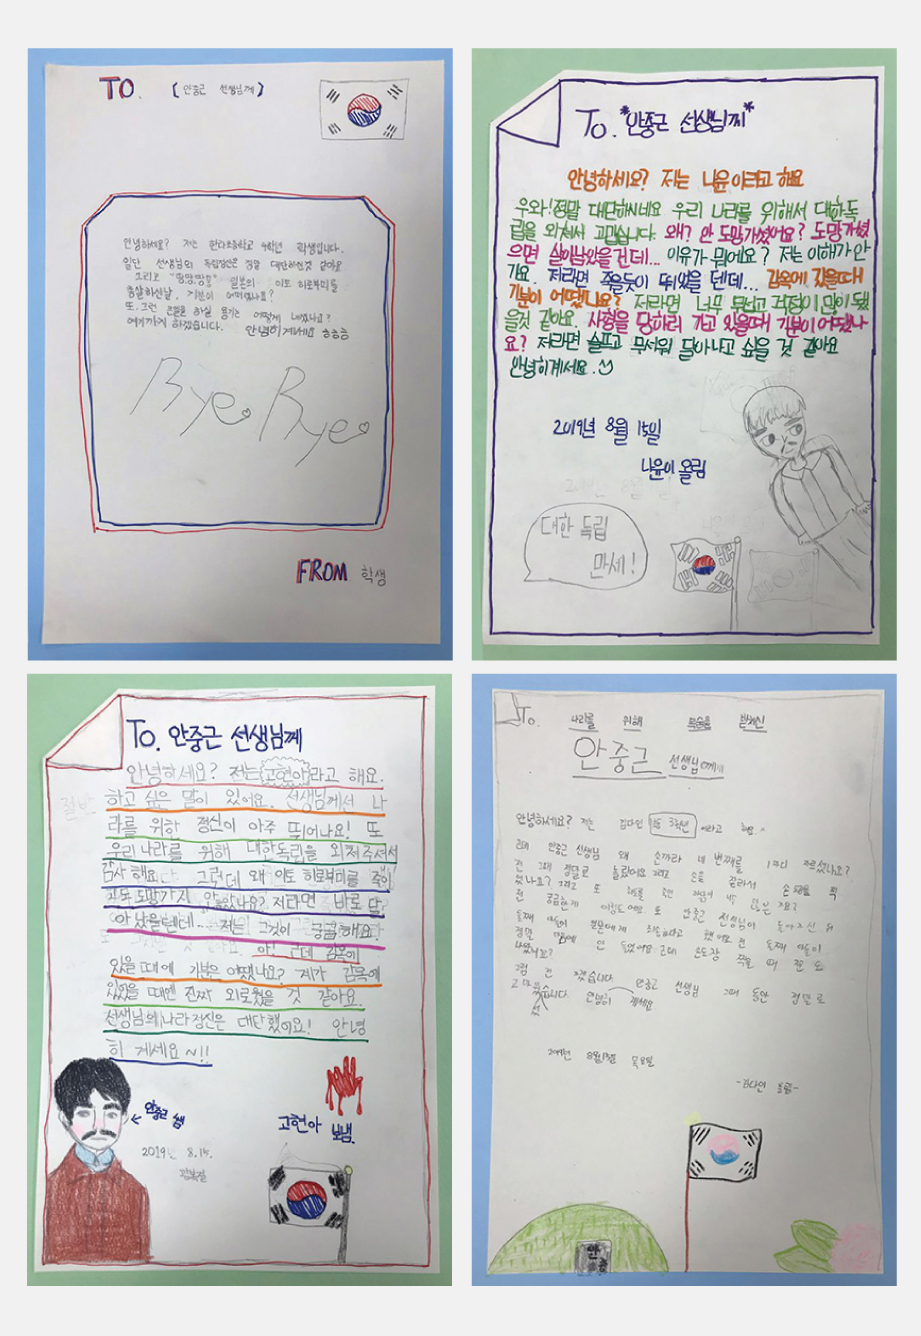 TO. [안중근 선생님께]
안녕하세요? 저는 한라초등학교 4학년 학생입니다.
일단 선생님의 독립정신은 정말 대단하신것 같아요
그리고 "땅땅땅" 일본의 이토 히로부미를
총살하신날, 기분이 어떠셨나요?
또, 그런 큰일을 하실 용기는 어떻게 내셨나요?
여기까지 하겠습니다. 안녕히계세요 ㅎㅎㅎ
Bye Bye
FROM 학생
To. *안중근 선생님께*
안녕하세요? 저는 나윤이라고 해요
우와! 정말 대단하시네요 우리 나라를 위해서 대한독
립을 외쳐서 고맙습니다. 왜? 안 도망가셨어요? 도망가셨
으면 살아남았을건데... 이유가 뭐에요? 저는 이해가 안
가요. 저라면 죽을듯이 뛰었을 텐데... 감옥에 갔을때
기분이 어땠나요? 저라면 너무 무섭고 걱정이 많이 됐
을것 같아요. 사형을 당하러 가고 있을때 기분이 어땠나
요? 저라면 슬프고 무서워 달아나고 싶을 것 같아요
안녕히계세요.
2019년 8월 15일
나윤이 올림
대한 독립
만세!
To. 안중근 선생님께
안녕하세요? 저는 고현아라고 해요.
하고 싶은 말이 있어요. 선생님께서 나
라를 위한 정신이 아주 뛰어나요! 또
우리나라를 위해 대한독립을 외쳐주셔서
감사해요. 그런데 왜 이토 히로부미를 죽이
고도 도망가지 않았나요? 저라면 바로 달
아났을텐데... 저는 그것이 궁금해요?
아! 근데 감옥에
있을 때에 기분은 어땠나요? 제가 감옥에
있었을 때엔 진짜 외로웠을 것 같아요.
선생님의 나라정신은 대단했어요! 안녕
히 계세요~!!
안중근 쌤
2019년 8.15.
광복절
고현아 보냄.
To. 나라를 위해 목숨을 바치신
안중근 선생님께
안녕하세요? 저는 김다인 3학년 이라고 해요.
전 안중근 선생님 왜 손가락 네 번째를
전 그때 정말로 놀랐어요 그리고 손을 잘라서
전 궁금한게 이정도예요 또 안중근 선생님이 돌아가신 뒤
둘째 아들이
그럼 전
고마웠습니다. 안녕히 계세요
2019년 8월15일 목요일
-김다인 올림-
안
중